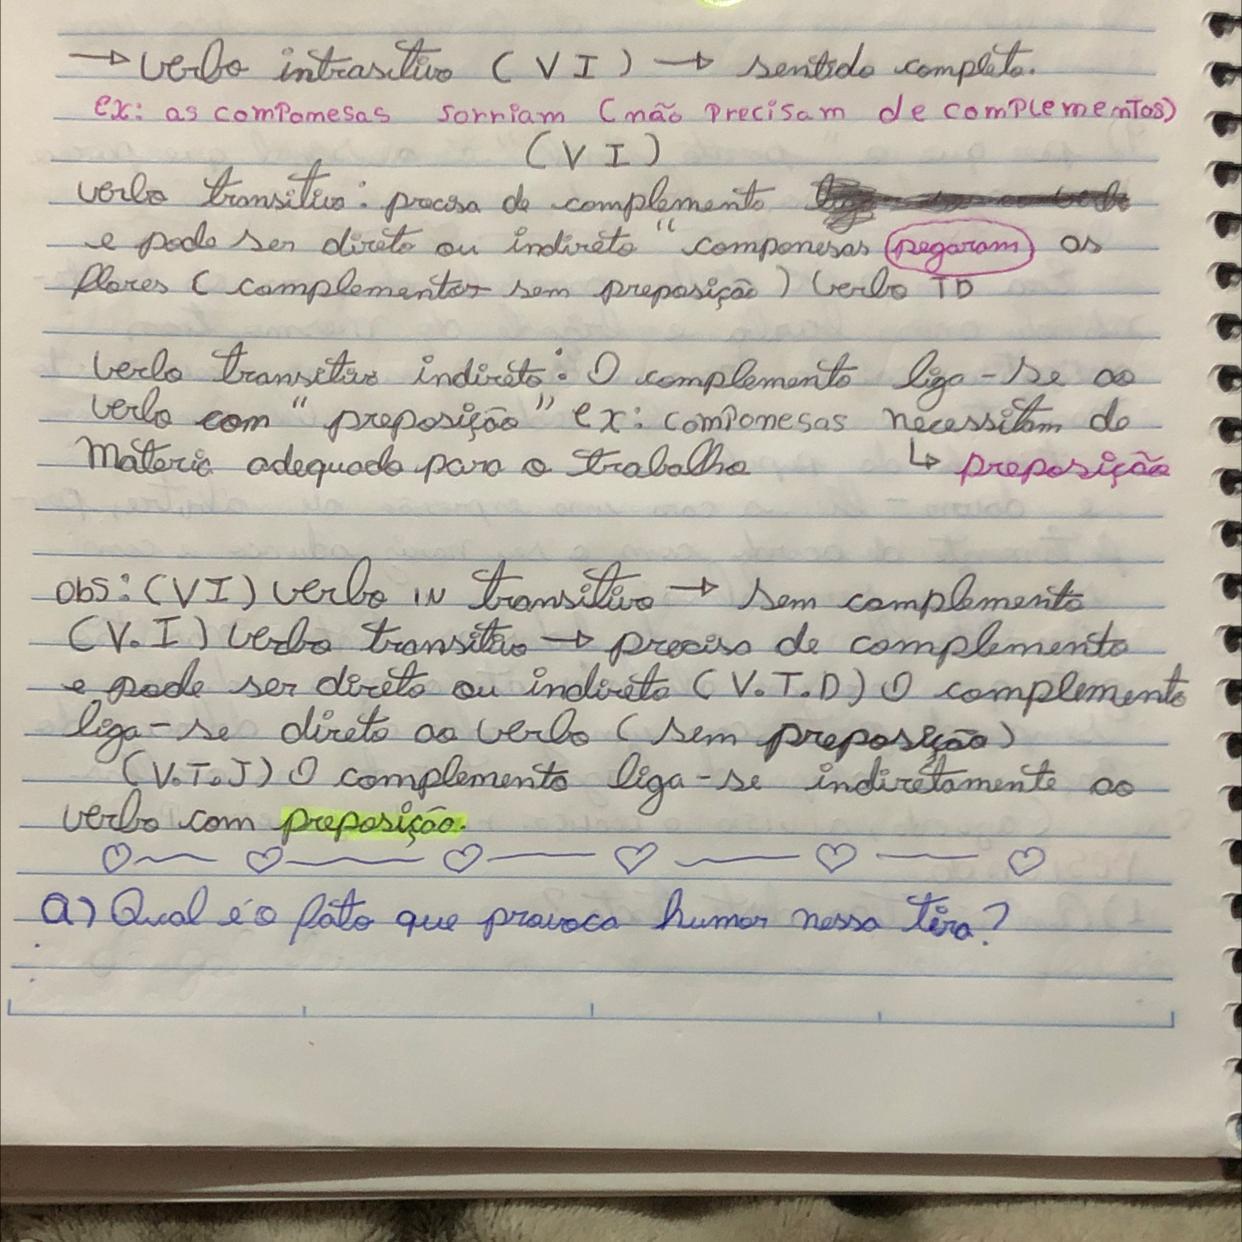 → verbo intrasitivo (VI) → sentido completo.
ex: as componesas sorriam (não precisam de complementos)
(VI)
verbo transitivo: precisa de complemento
e pode ser direto ou indireto "componesas pegaram as
flores (complementos sem preposição) verbo TD
verbo transitivo indireto: O complemento liga-se ao
verbo com "preposição" ex: componesas necessitam de
Materia adequado para o trabalho ↳ preposição
obs: (VI) verbo IN transitivo → sem complemento
(V.I) verbo transitivo → precisa de complemento
e pode ser direto ou indireto (V.T.D) O complemento
liga-se direto ao verbo (sem preposição)
(V.T.I) O complemento liga-se indiretamente ao
verbo com preposição.
a) Qual é o fato que provoca humor nessa tira?